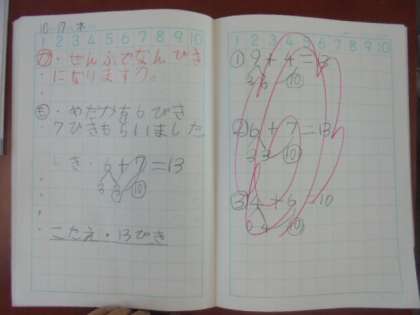 10 17 木
1 2 3 4 5 6 7 8 9 10
・ぜんぶでなんびき
になりますか。
・めだかを6ぴき
7ひきもらいました
しき・6+7=13
3 3 10
こたえ・13びき
1 2 3 4 5 6 7 8 9 10
① 9+4=13
3 10
② 6+7=13
3 3 10
③ 4+6=10
0 4 10